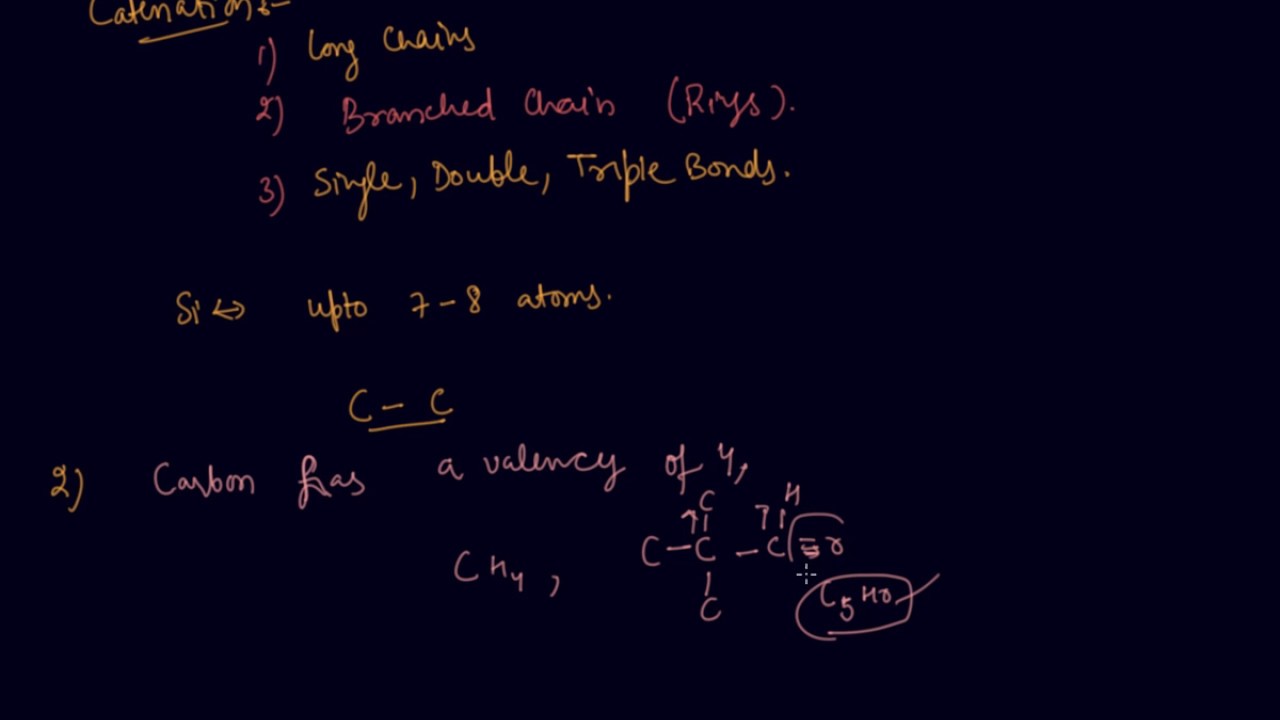 Catenation:-
1) Long Chains
2) Branched Chain (Rings).
3) Single, Double, Triple Bonds.
Si ↔ upto 7-8 atoms.
C - C
2) Carbon has a valency of 4,
C H
C - C - C = O
CH4 ,
C